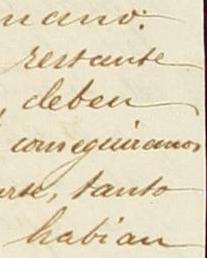 mano:
restante
, deben
conseguiramos
arse, tanto
habian